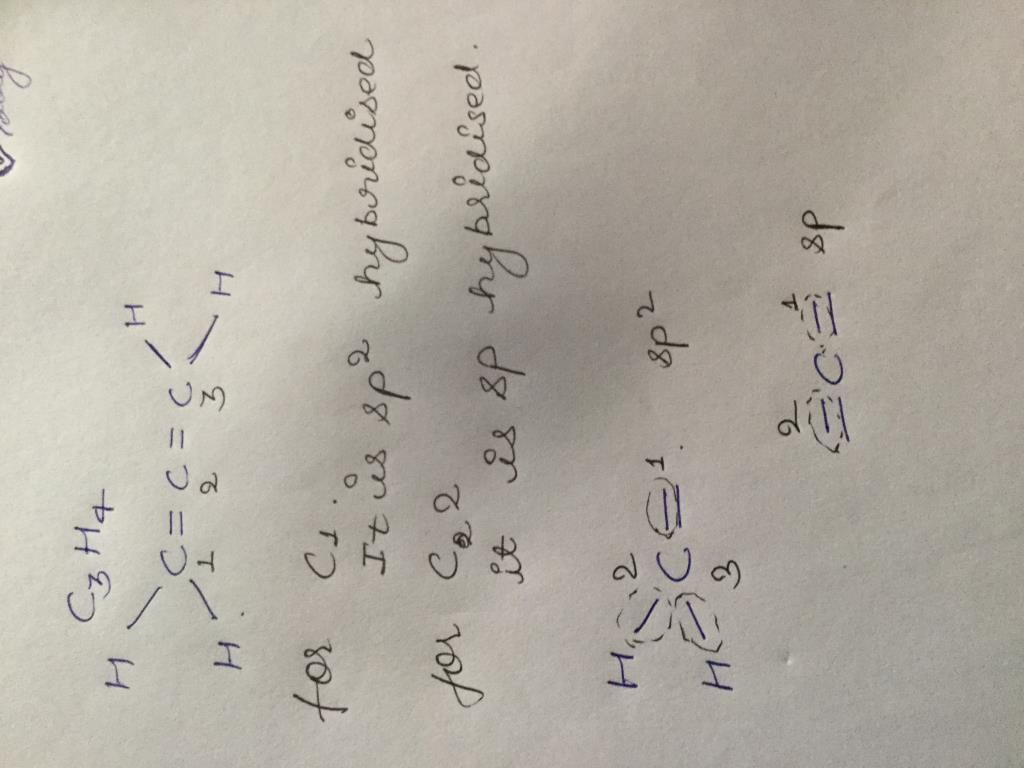 C3H4
H H
C = C = C
1 2 3
H H
for C1.
It is sp² hybridised
for C2
it is sp hybridised.
H 2
C = 1. sp²
H 3
2 1
= C = sp